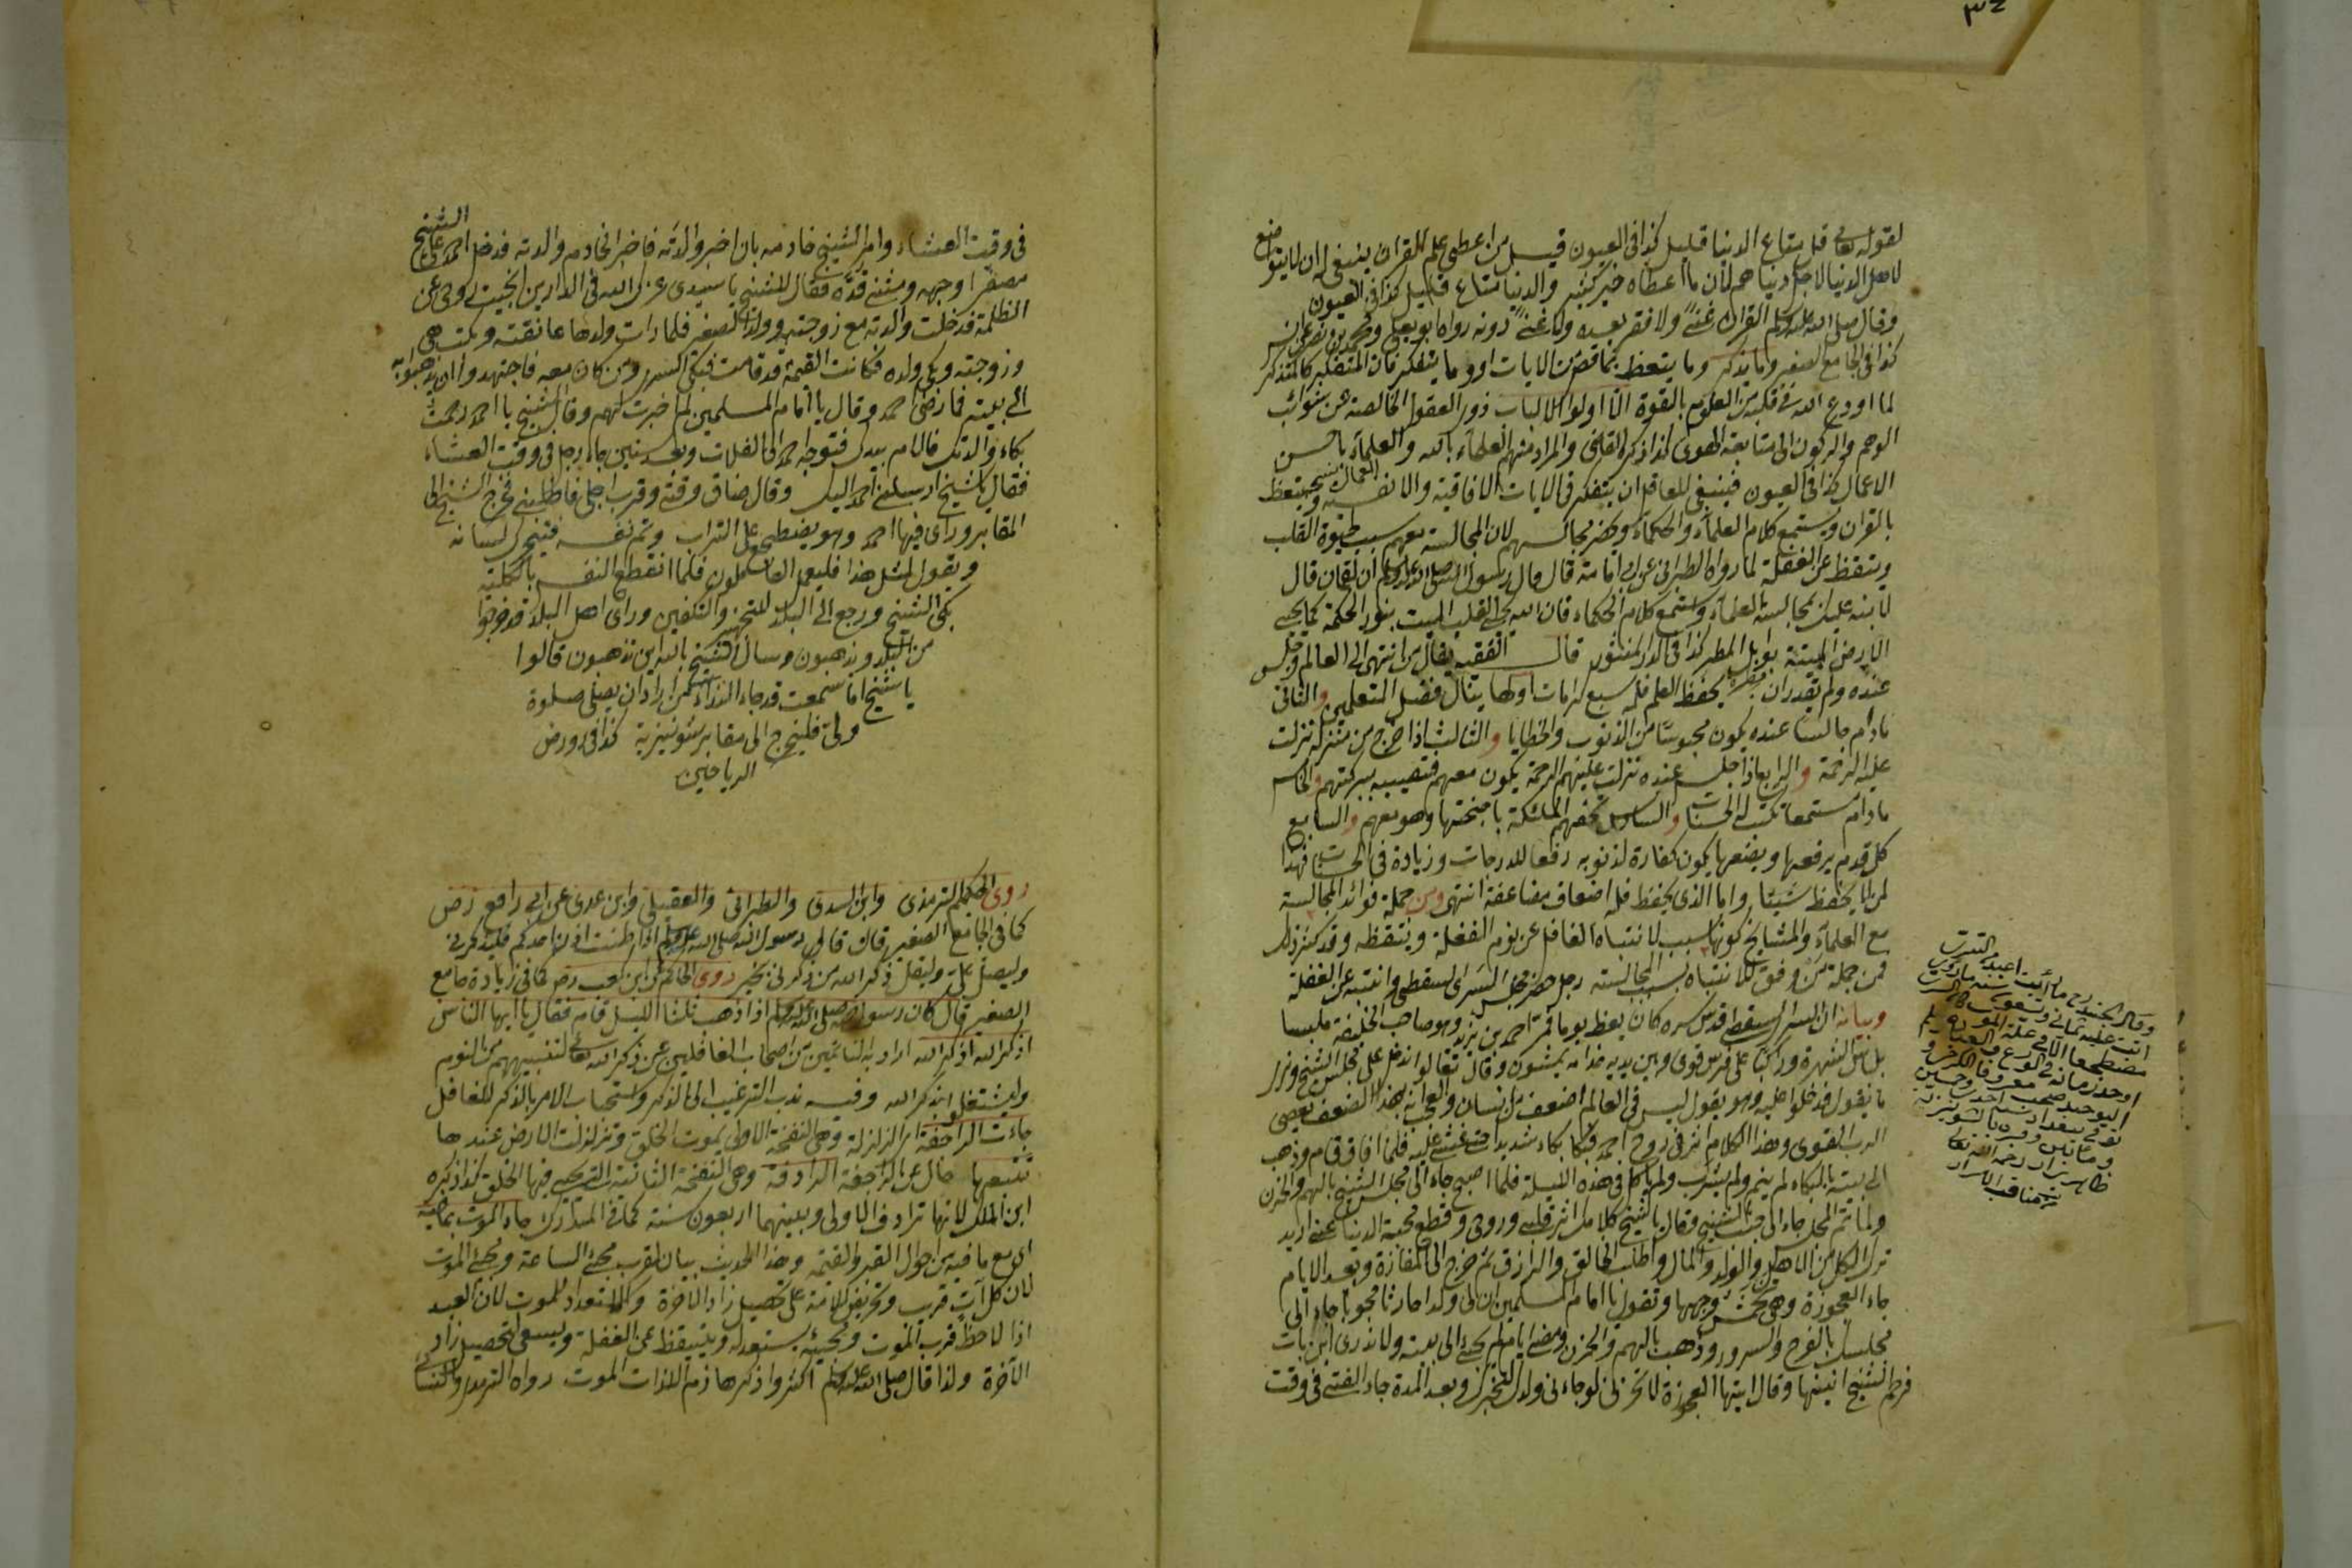 ٣٤
لقوله تعالى قل متاع الدنيا قليل كذا فى العيون قيل من اعطى علم القران ينبغى له ان لا يتواضع
لاهل الدنيا لاجل دنياهم لان ما اعطاه خير كثير والدنيا متاع قليل كذا فى العيون
وقال صلى الله عليه وسلم القران غنى ولا فقر بعده ولا غنى دونه رواه ابو يعلى ومحمد بن نصر عن انس
كذا فى الجامع الصغير وما يذكر وما يتعظ بما قص من الايات او وما يتفكر فان المتفكر كالمتذكر
لما اودع الله فى قلبه من العلوم بالقوة الا اولوا الالباب ذوو العقول الخالصة عن شوائب
الوهم والركون الى متابعة الهوى كذا ذكره القاضى والمراد منهم العلماء بالله والعلماء باحسن
الاعمال كذا فى العيون فينبغى للعاقل ان يتفكر فى الايات الافاقية والانفسية ويتعظ
بالقران ويستمع كلام العلماء والحكماء ويحضر مجالسهم لان المجالسة معهم سبب لحيوة القلب
ويتقظ عن الغفلة لما رواه الطبرانى عن ابى امامة قال قال رسول الله صلى الله عليه وسلم ان لقمان قال
لابنه عليك بمجالسة العلماء واستمع كلام الحكماء فان الله يحيى القلب الميت بنور الحكمة كما يحيى
الارض الميتة بوابل المطر كذا فى الدر المنثور قال الفقيه يقال من انتهى الى العالم وجلس
عنده ولم يقدر ان يحفظ العلم فله سبع كرامات اولها ينال فضل المتعلمين والثانى
مادام جالسا عنده يكون محبوسا من الذنوب والخطايا والثالث اذا خرج من منزله نزلت
عليه الرحمة والرابع اذا جلس عنده تنزلت عليهم الرحمة يكون معهم فتصيبه ببركتهم والخامس
مادام مستمعا تكتب له الحسنات والسادس تحفهم الملئكة باجنحتها وهو معهم والسابع
كل قدم يرفعها ويضعها يكون كفارة لذنوبه ورفعا للدرجات وزيادة فى الحسنات فهذا
لمن لا يحفظ شيئا واما الذى يحفظ فله اضعاف مضاعفة انتهى ومن جملة فوائد المجالسة
مع العلماء والمشايخ كونها سبب لانتباه الغافل عن نوم الغفلة ويتقظه وقد كثر ذلك
فمن جملة من وفق للانتباه بسبب المجالسة رجل حضر مجلس السرى السقطى وانتبه عن الغفلة
وبيانه ان السرى السقطى قدس سره كان يعظ يوما فمر احمد بن يزيد وهو صاحب الخليفة ملبسا
بلباس الشهرة وراكبا على فرس قوى وبين يديه خدامه يمشون وقال تعالوا ندخل على مجلس الشيخ ونرى
ما يقول فدخلوا عليه وهو يقول ليس فى العالم اضعف من انسان والعجب انه بهذا الضعف يعصى
الرب القوى وهذا الكلام اثر فى روح احمد فبكا بكاء شديدا حتى غشى عليه فلما افاق قام وذهب
الى بيته بالبكاء لم ينم ولم يشرب ولم ياكل فى هذه الليلة فلما اصبح جاء الى مجلس الشيخ بالهم والحزن
ولما تم المجلس جاء الى جنب الشيخ وقال يا شيخ كلامك اثر قلبى وروحى وقطع محبة الدنيا عنى اريد
ترك الكل من الاهل والولد والمال واطلب الخالق والرازق ثم خرج الى المفازة وبعد الايام
جاء العجوزة وهى تخمش وجهها وتقول يا امام المسلمين ان لى ولدا حارثا محبوبا جاء الى
مجلسك بالفرح والسرور وذهب بالهم والحزن ومضى ايام لم يجئ الى بيته ولا ندرى اين بات
فرحم الشيخ انينها وقال ايتها العجوزة لا تحزنى لو جاءنى ولدك اخبرك وبعد المدة جاء الفتى فى وقت
وقال الجنيد رح ما رأيت اعبد من السرى
اتت عليه ثمانى وتسعون سنة ما رؤى
مضطجعا الا فى علة الموت
اوحد زمانه فى الورع
توفى ببغداد سنة احدى وخمسين
ومأتين وقبره بالشونيزية
ظاهر يزار رحمه الله تعالى
من مناقب الابرار
فى وقت العشاء وامر الشيخ خادمه بان اخبر والدته فاخبر الخادم والدته فدخل احمد على الشيخ
مصفرا وجهه ومنثنى قده فقال للشيخ يا سيدى عزك الله فى الدارين انجيت روحى عن
الظلمة فدخلت والدته مع زوجته وولده الصغير فلما رات ولدها عانقته وبكت هى
وزوجته وبكى ولده فكانت القيمة قد قامت فبكى السرى ومن كان معه فاجتهدوا ان يذهبوا به
الى بيته فما رضى احمد وقال يا امام المسلمين لم اخبرت لهم وقال الشيخ يا احمد رحمت
بكاء والدتك فالامر بيدك فتوجه احمد الى الفلات وبعد سنين جاء رجل فى وقت العشاء
فقال يا شيخ ارسلنى احمد اليك وقال ضاق وقتى وقرب اجلى فاطلبنى فخرج الشيخ الى
المقابر وراى فيها احمد وهو يضطجع على التراب وتم نفسه فيتحرك لسانه
وتقول لمثل هذا فليعمل العاملون فلما انقطع النفس بالكلية
بكى الشيخ ورجع الى البلد للتجهيز والتكفين وراى اهل البلد قد خرجوا
من البلد ويذهبون وسال الشيخ بالله اين تذهبون قالوا
يا شيخ اما سمعت قد جاء النداء من اراد ان يصلى صلوة
ولى فليخرج الى مقابر شونيزية كذا فى روض
الرياحين
روى الحكيم الترمذى وابن السنى والطبرانى والعقيلى وابن عدى عن ابى رافع رض
كما فى الجامع الصغير قال قال رسول الله صلى الله عليه وسلم اذا طنت اذن احدكم فليذكرنى
وليصل على وليقل ذكر الله من ذكرنى بخير روى الحاكم عن ابى بن كعب رض كما فى زيادة جامع
الصغير قال كان رسول الله صلى الله عليه وسلم اذا ذهب ثلثا الليل قام فقال يا ايها الناس
اذكر الله اذكر الله اراد به النائمين من اصحاب الغافلين عن ذكر الله تعالى لتنبيههم من النوم
وليشتغلوا بذكر الله وفيه ندب الترغيب الى الذكر واستحباب الامر بالذكر للغافل
جاءت الراجفة اى الزلزلة وهى النفخة الاولى بموت الخلق وتزلزلت الارض عندها
تتبعها حال عن الراجفة الرادفة وهى النفخة الثانية التى يحيى فيها الخلق كذا ذكره
ابن الملك لانها ترادف الاولى وبينهما اربعون سنة كما فى المدارك جاء الموت بما فيه
اى مع ما فيه من احوال القبر والقيمة وهذا الحديث بيان لقرب مجئ الساعة ومجئ الموت
لان كل آت قريب وتحريض للامة على تحصيل زاد الاخرة والاستعداد للموت لان العبد
اذا لاحظ قرب الموت ومجيئه يستعد له ويتيقظ عن الغفلة ويسعى لتحصيل زاد
الآخرة ولذا قال صلى الله عليه وسلم اكثروا ذكر هاذم اللذات الموت رواه الترمذى والنسائى